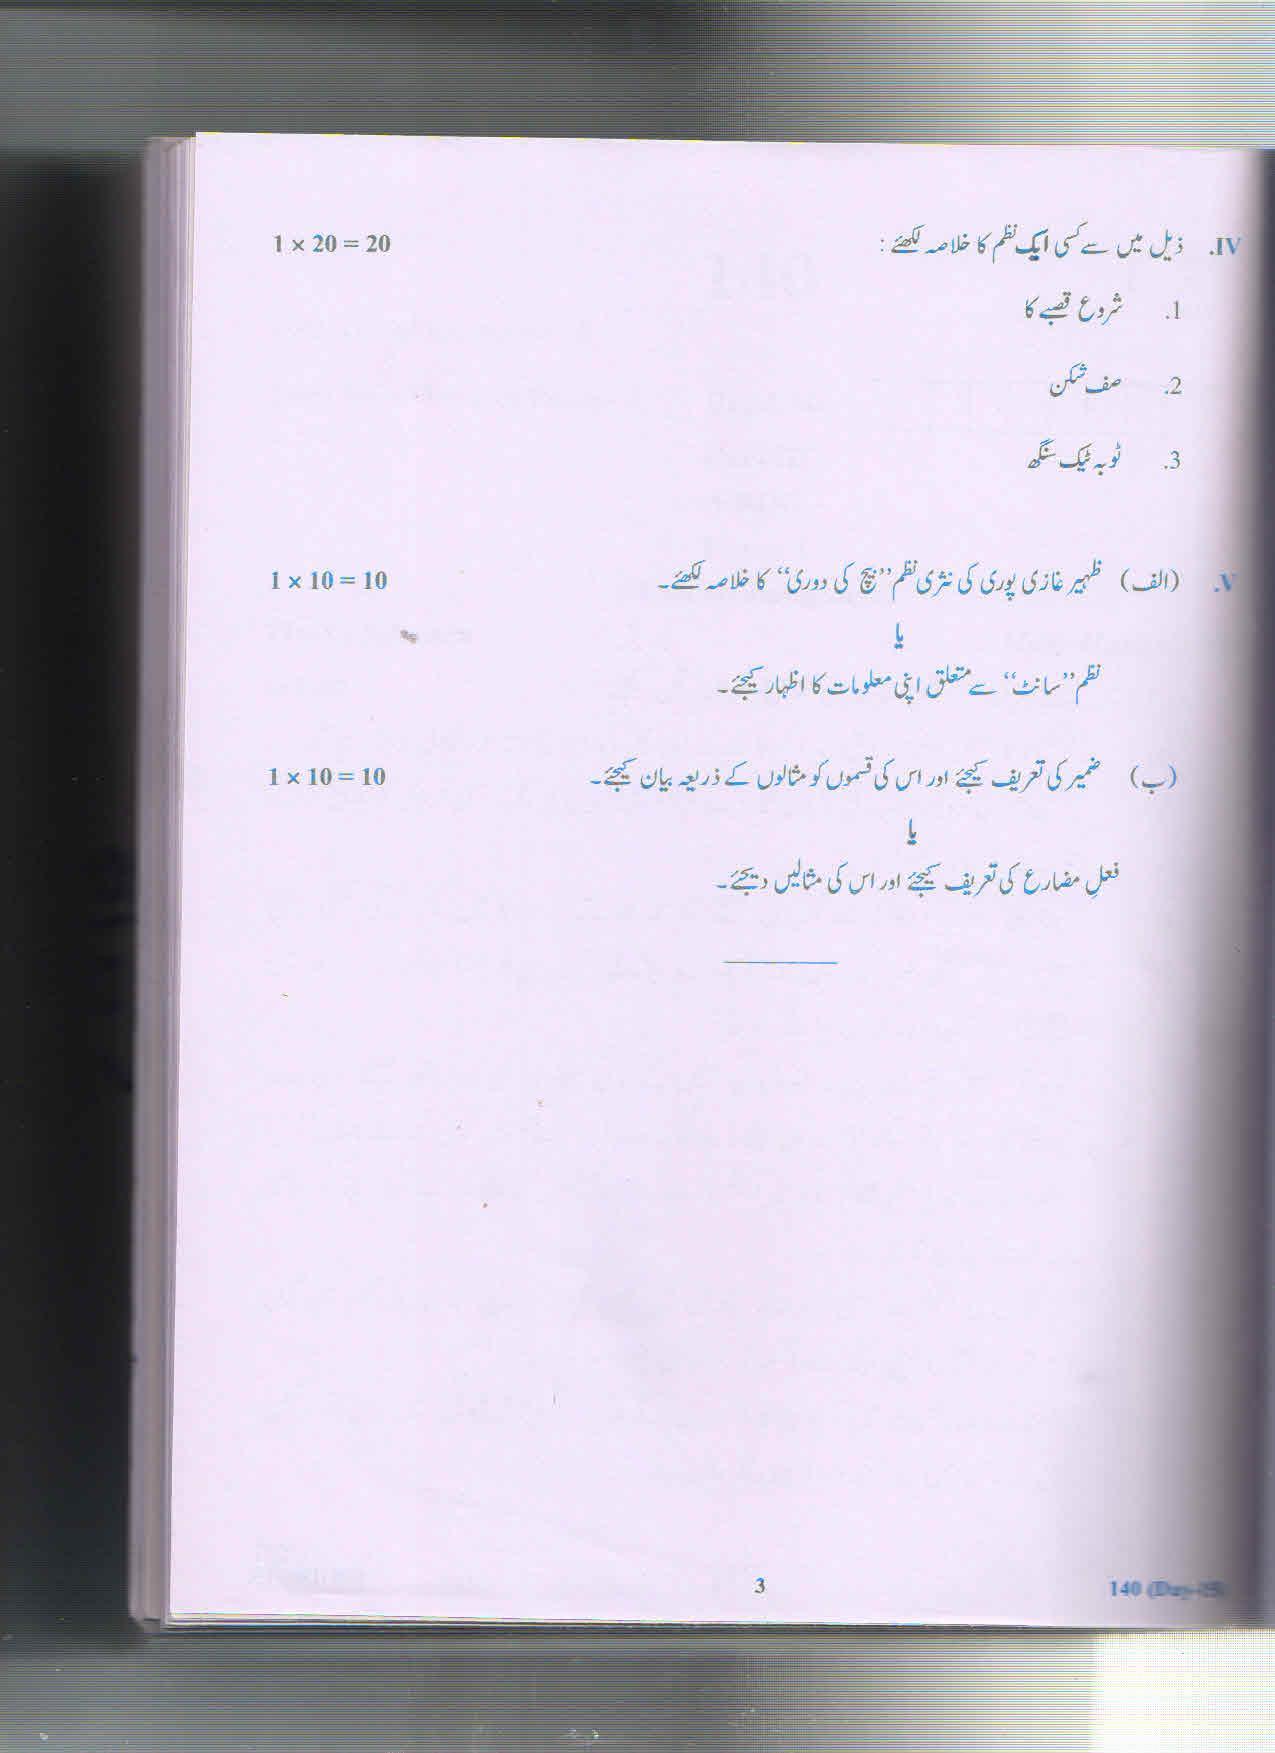 IV. ذیل میں سے کسی ایک نظم کا خلاصہ لکھئے : 1 × 20 = 20
1. شروع قصبے کا
2. صف شکن
3. ٹوبہ ٹیک سنگھ
V. (الف) ظہیر غازی پوری کی نثری نظم ’’بیچ کی دوری‘‘ کا خلاصہ لکھئے۔ 1 × 10 = 10
یا
نظم ’’سانٹ‘‘ سے متعلق اپنی معلومات کا اظہار کیجئے۔
(ب) ضمیر کی تعریف کیجئے اور اس کی قسموں کو مثالوں کے ذریعہ بیان کیجئے۔ 1 × 10 = 10
یا
فعلِ مضارع کی تعریف کیجئے اور اس کی مثالیں دیجئے۔
3
140 (Day-